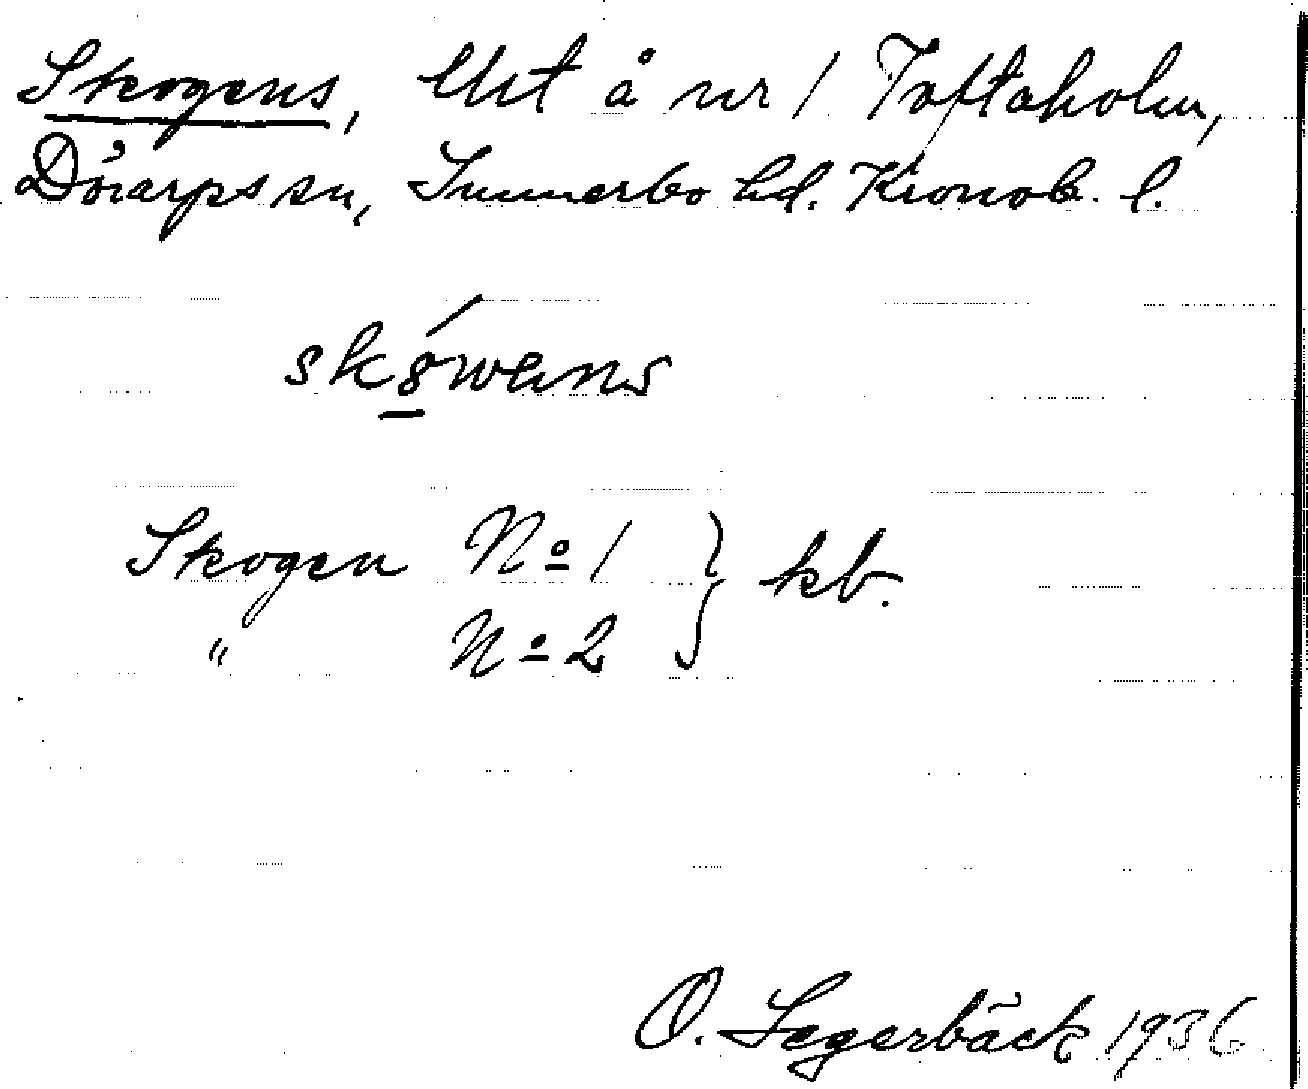 Skogens, Utt å nr 1 Toftaholm,
Dörarps sn, Sunnerbo hd. Kronob. l.
skówans
Skogen No 1 } kb.
" No 2
O. Segerbäck 1936